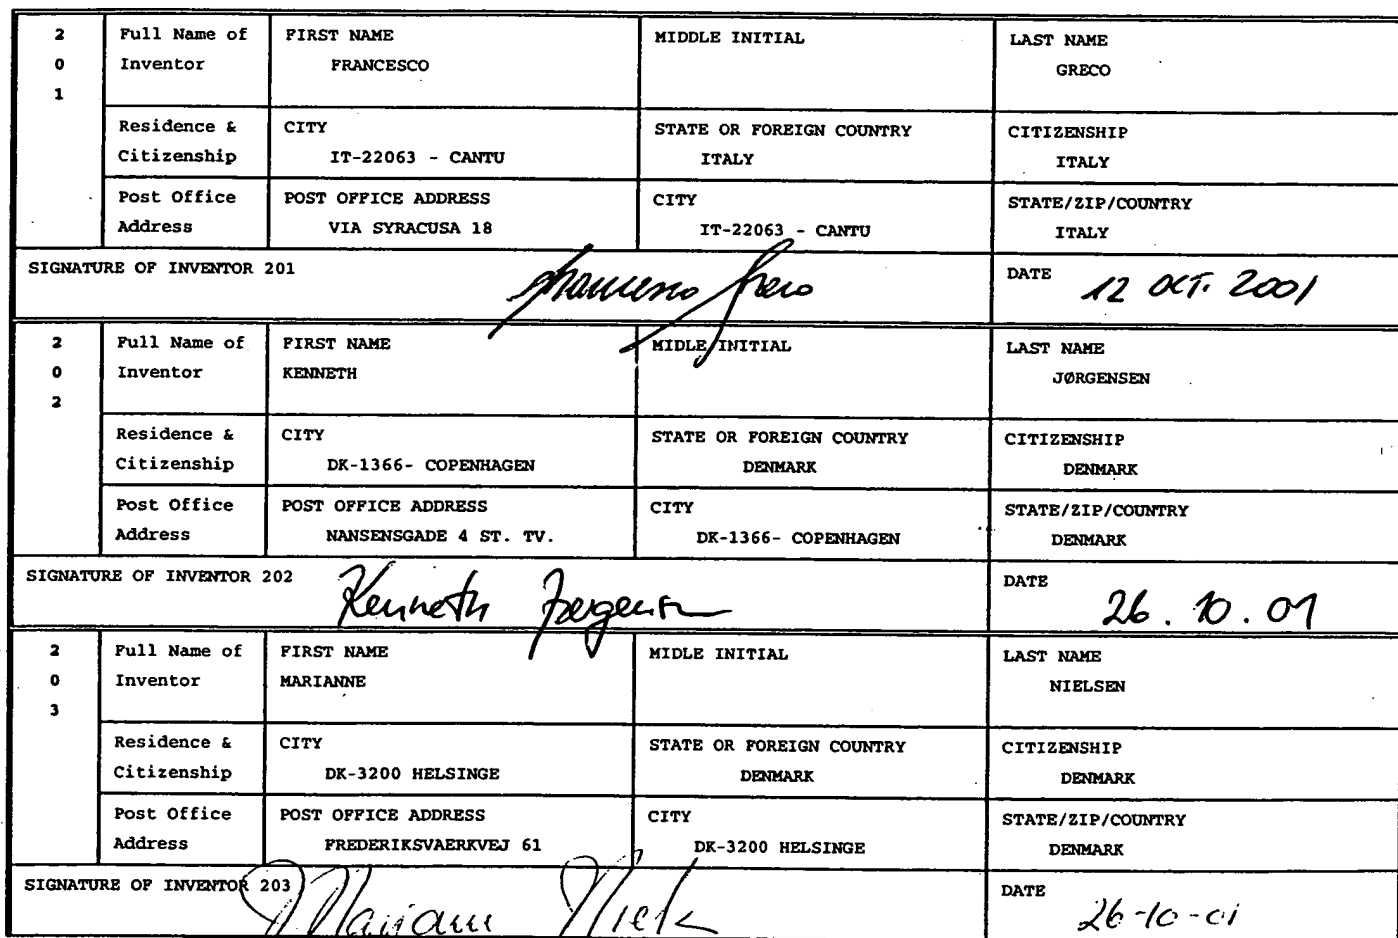 2 0 1 Full Name of Inventor FIRST NAME FRANCESCO MIDDLE INITIAL LAST NAME GRECO
Residence & Citizenship CITY IT-22063 - CANTU STATE OR FOREIGN COUNTRY ITALY CITIZENSHIP ITALY
Post Office Address POST OFFICE ADDRESS VIA SYRACUSA 18 CITY IT-22063 - CANTU STATE/ZIP/COUNTRY ITALY
SIGNATURE OF INVENTOR 201 Francesco Greco DATE 12 OCT. 2001
2 0 2 Full Name of Inventor FIRST NAME KENNETH MIDLE INITIAL LAST NAME JØRGENSEN
Residence & Citizenship CITY DK-1366- COPENHAGEN STATE OR FOREIGN COUNTRY DENMARK CITIZENSHIP DENMARK
Post Office Address POST OFFICE ADDRESS NANSENSGADE 4 ST. TV. CITY DK-1366- COPENHAGEN STATE/ZIP/COUNTRY DENMARK
SIGNATURE OF INVENTOR 202 Kenneth Jørgensen DATE 26.10.01
2 0 3 Full Name of Inventor FIRST NAME MARIANNE MIDLE INITIAL LAST NAME NIELSEN
Residence & Citizenship CITY DK-3200 HELSINGE STATE OR FOREIGN COUNTRY DENMARK CITIZENSHIP DENMARK
Post Office Address POST OFFICE ADDRESS FREDERIKSVAERKVEJ 61 CITY DK-3200 HELSINGE STATE/ZIP/COUNTRY DENMARK
SIGNATURE OF INVENTOR 203 Mariann Niels DATE 26-10-01